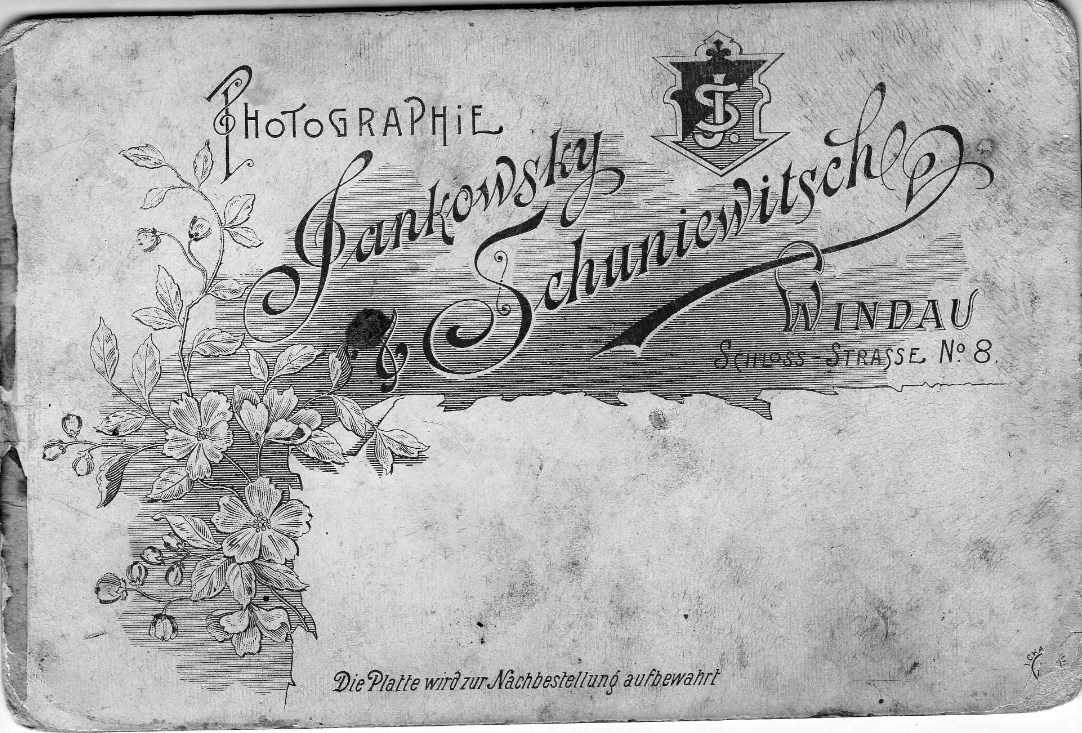 PHOTOGRAPHIE
Jankowsky
& Schuniewitsch
WINDAU
SCHLOSS-STRASSE No 8.
Die Platte wird zur Nachbestellung aufbewahrt